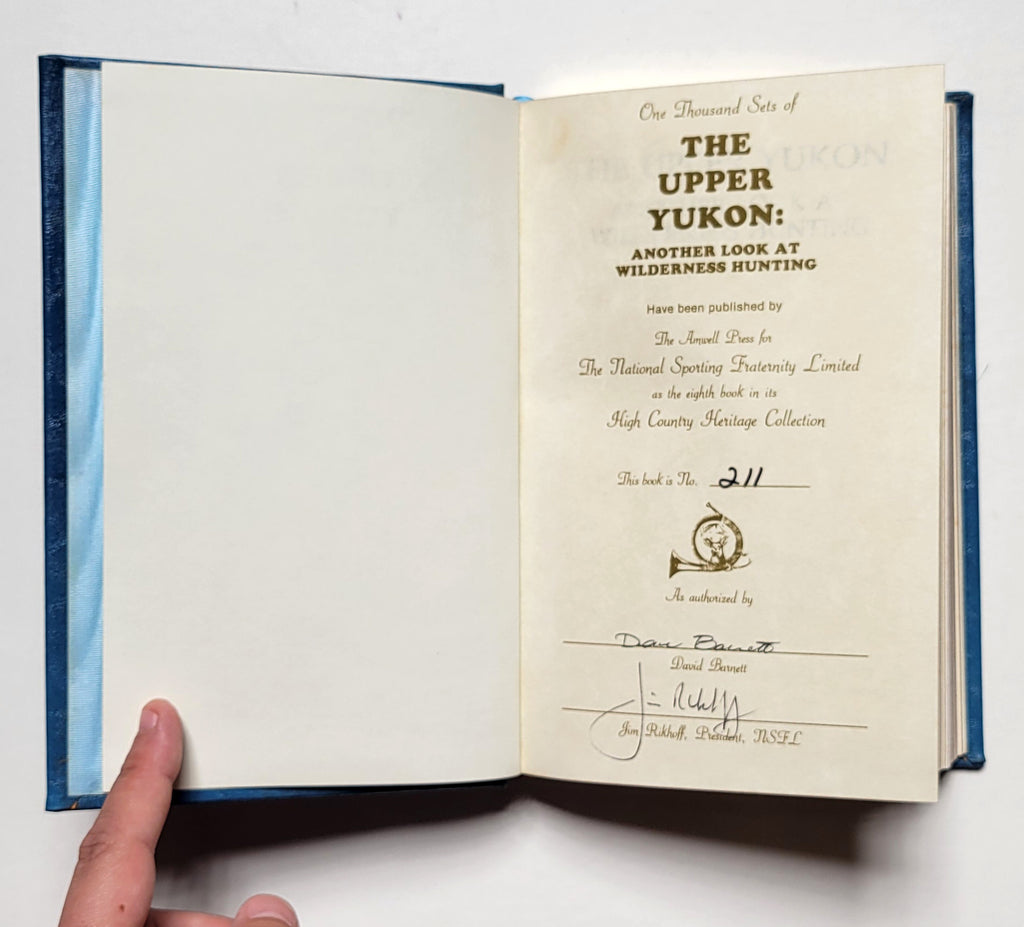 One Thousand Sets of
THE
UPPER
YUKON:
ANOTHER LOOK AT
WILDERNESS HUNTING
Have been published by
The Amwell Press for
The National Sporting Fraternity Limited
as the eighth book in its
High Country Heritage Collection
This book is No. 211
As authorized by
Dave Barnett
David Barnett
Jim Rikhoff
Jim Rikhoff, President, NSFL